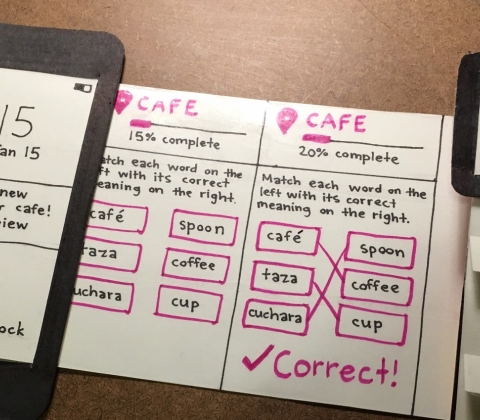 15
an 15
new
cafe!
iew
ock
CAFE
15% complete
atch each word on the
ft with its correct
eaning on the right.
café
spoon
aza
coffee
uchara
cup
CAFE
20% complete
Match each word on the
left with its correct
meaning on the right.
café
spoon
taza
coffee
cuchara
cup
✓Correct!